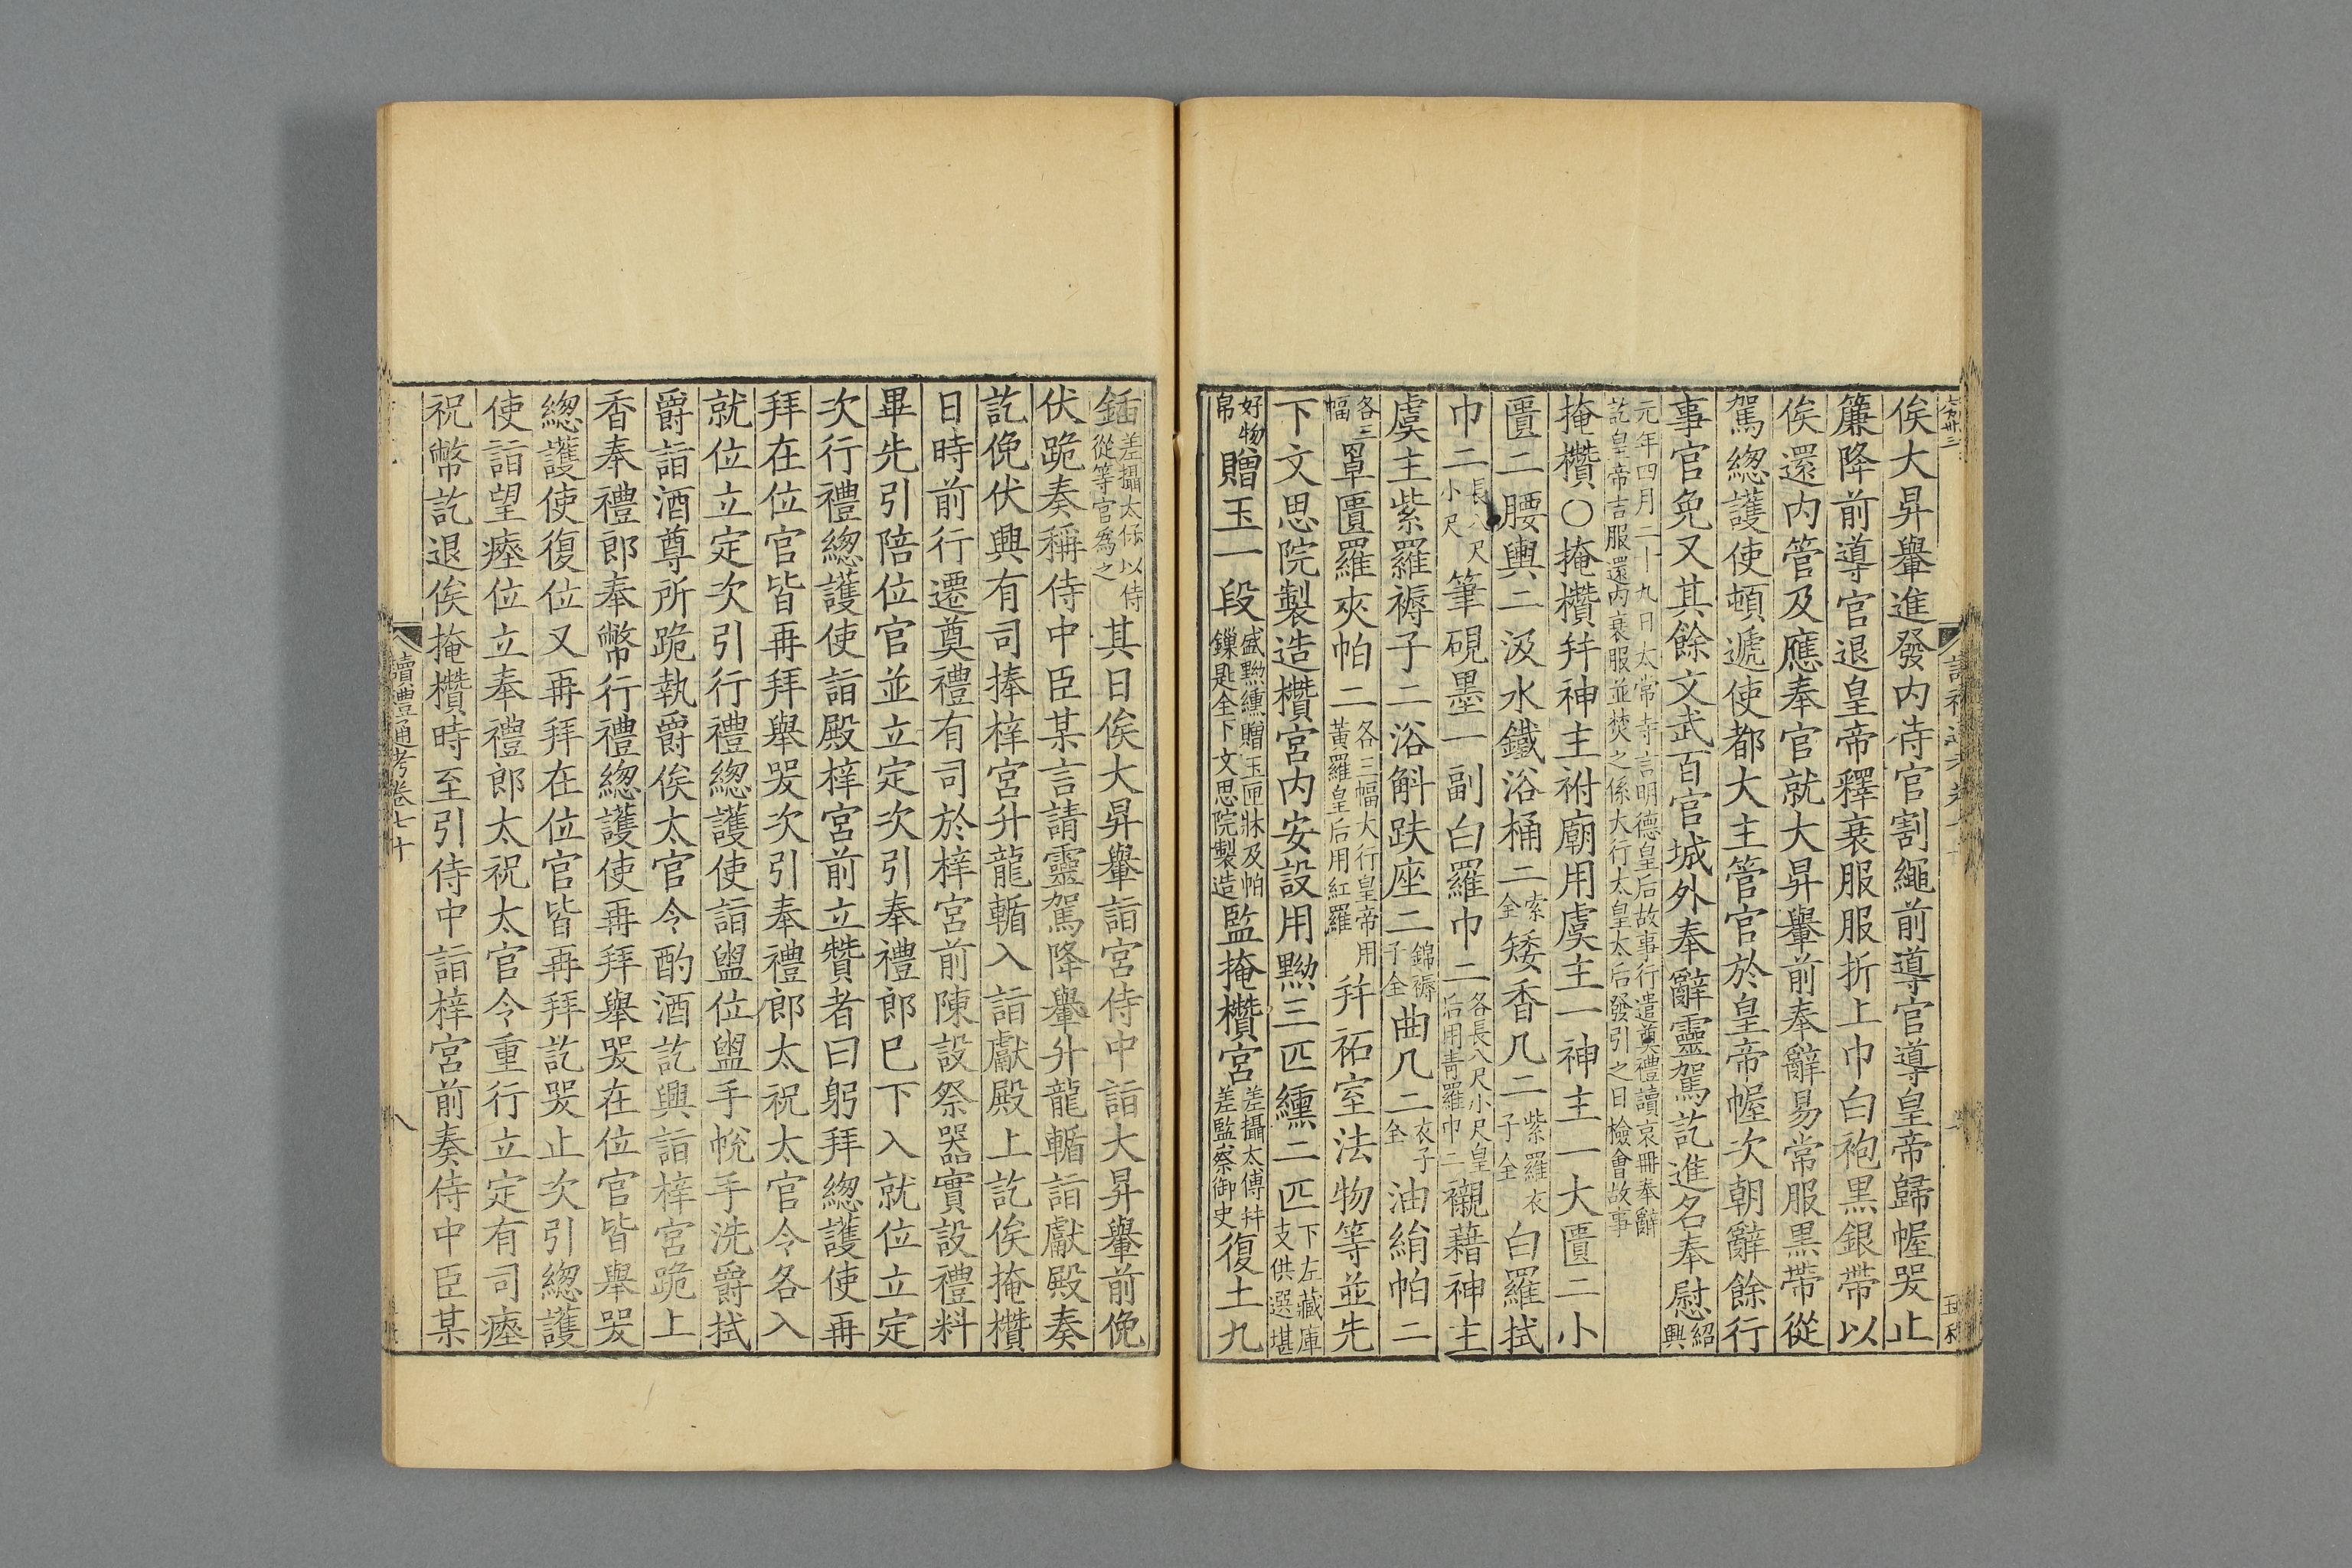 俟大昇轝進發内侍官割繩前導官導皇帝歸幄哭止
簾降前導官退皇帝釋衰服服折上巾白袍黑銀帶以
俟還内管及應奉官就大昇轝前奉辭易常服黑帶從
駕緫護使頓遞使都大主管官於皇帝幄次朝辭餘行
事官免又其餘文武百官城外奉辭靈駕訖進名奉慰紹興
元年四月二十九日太常寺言明德皇后故事行遣奠禮讀哀冊奉辭
訖皇帝吉服還内衰服並焚之係大行太皇太后發引之日檢會故事
掩欑○掩欑并神主祔廟用虞主一神主一大匱二小
匱二腰輿二汲水鐵浴桶二索全矮香几二紫羅衣子全白羅拭
巾二長八尺小尺筆硯墨一副白羅巾二各長八尺小尺皇后用青羅巾二襯藉神主
虞主紫羅褥子二浴斛趺座二錦褥子全曲几二衣子全油絹帕二
各三幅罩匱羅夾帕二各三幅大行皇帝用黃羅皇后用紅羅并祏室法物等並先
下文思院製造欑宮内安設用黝三匹纁二匹下左藏庫支供選堪
好物帛贈玉一段盛黝纁贈玉匣牀及帕鏁匙全下文思院製造監掩欑宮差攝太傅并差監察御史復土九
鍤差攝太保以侍從等官為之其日俟大昇轝詣宮侍中詣大昇轝前俛
伏跪奏稱侍中臣某言請靈駕降轝升龍輴詣獻殿奏
訖俛伏興有司捧梓宮升龍輴入詣獻殿上訖俟掩欑
日時前行遷奠禮有司於梓宮前陳設祭器實設禮料
畢先引陪位官並立定次引奉禮郎已下入就位立定
次行禮緫護使詣殿梓宮前立贊者曰躬拜緫護使再
拜在位官皆再拜舉哭次引奉禮郎太祝太官令各入
就位立定次引行禮緫護使詣盥位盥手帨手洗爵拭
爵詣酒尊所跪執爵俟太官令酌酒訖興詣梓宮跪上
香奉禮郎奉幣行禮緫護使再拜舉哭在位官皆舉哭
緫護使復位又再拜在位官皆再拜訖哭止次引緫護
使詣望瘞位立奉禮郎太祝太官令重行立定有司瘞
祝幣訖退俟掩欑時至引侍中詣梓宮前奏侍中臣某
讀禮通考卷七十
八